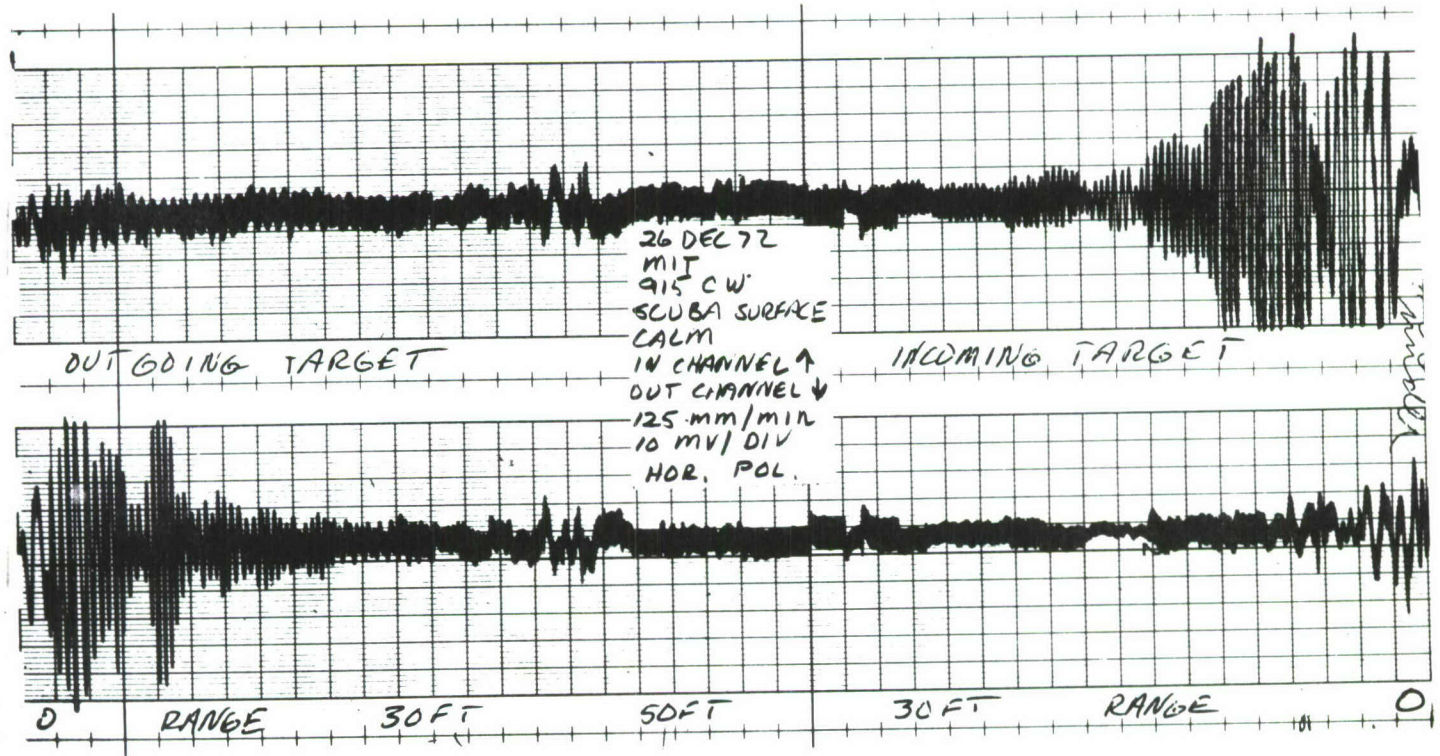 26 DEC 72
MIT
915 CW
SCUBA SURFACE
CALM
IN CHANNEL ↑
OUT CHANNEL ↓
125 mm/min
10 MV/DIV
HOR. POL.
OUTGOING TARGET
INCOMING TARGET
0 RANGE 30FT 50FT 30FT RANGE 0